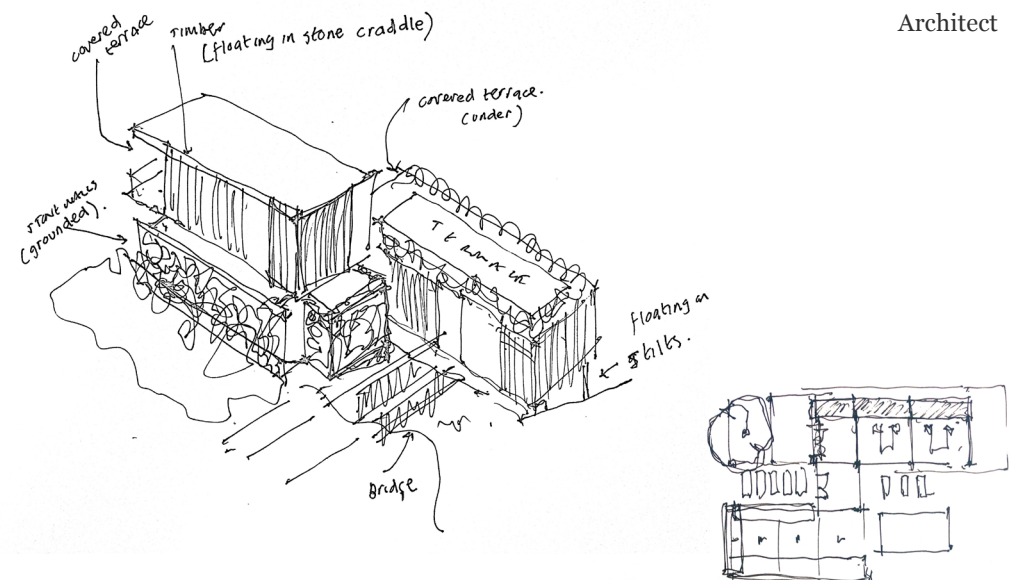 Architect
covered
terrace
TIMBER
(floating in stone craddle)
covered terrace.
(under)
STONE WALLS
(grounded).
TERRACE
floating on
stilts.
Bridge